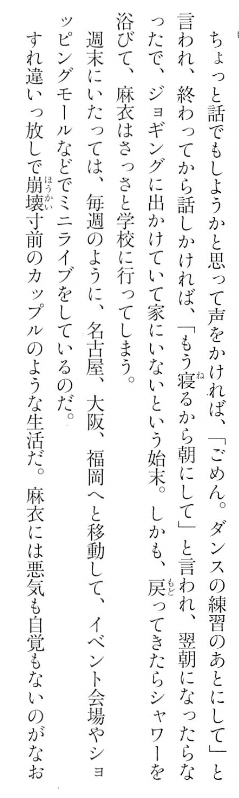 ちょっと話でもしようかと思って声をかければ、「ごめん。ダンスの練習のあとにして」と
言われ、終わってから話しかければ、「もう寝るから朝にして」と言われ、翌朝になったらな
ったで、ジョギングに出かけていて家にいないという始末。しかも、戻ってきたらシャワーを
浴びて、麻衣はさっさと学校に行ってしまう。
週末にいたっては、毎週のように、名古屋、大阪、福岡へと移動して、イベント会場やショ
ッピングモールなどでミニライブをしているのだ。
すれ違いっ放しで崩壊寸前のカップルのような生活だ。麻衣には悪気も自覚もないのがなお